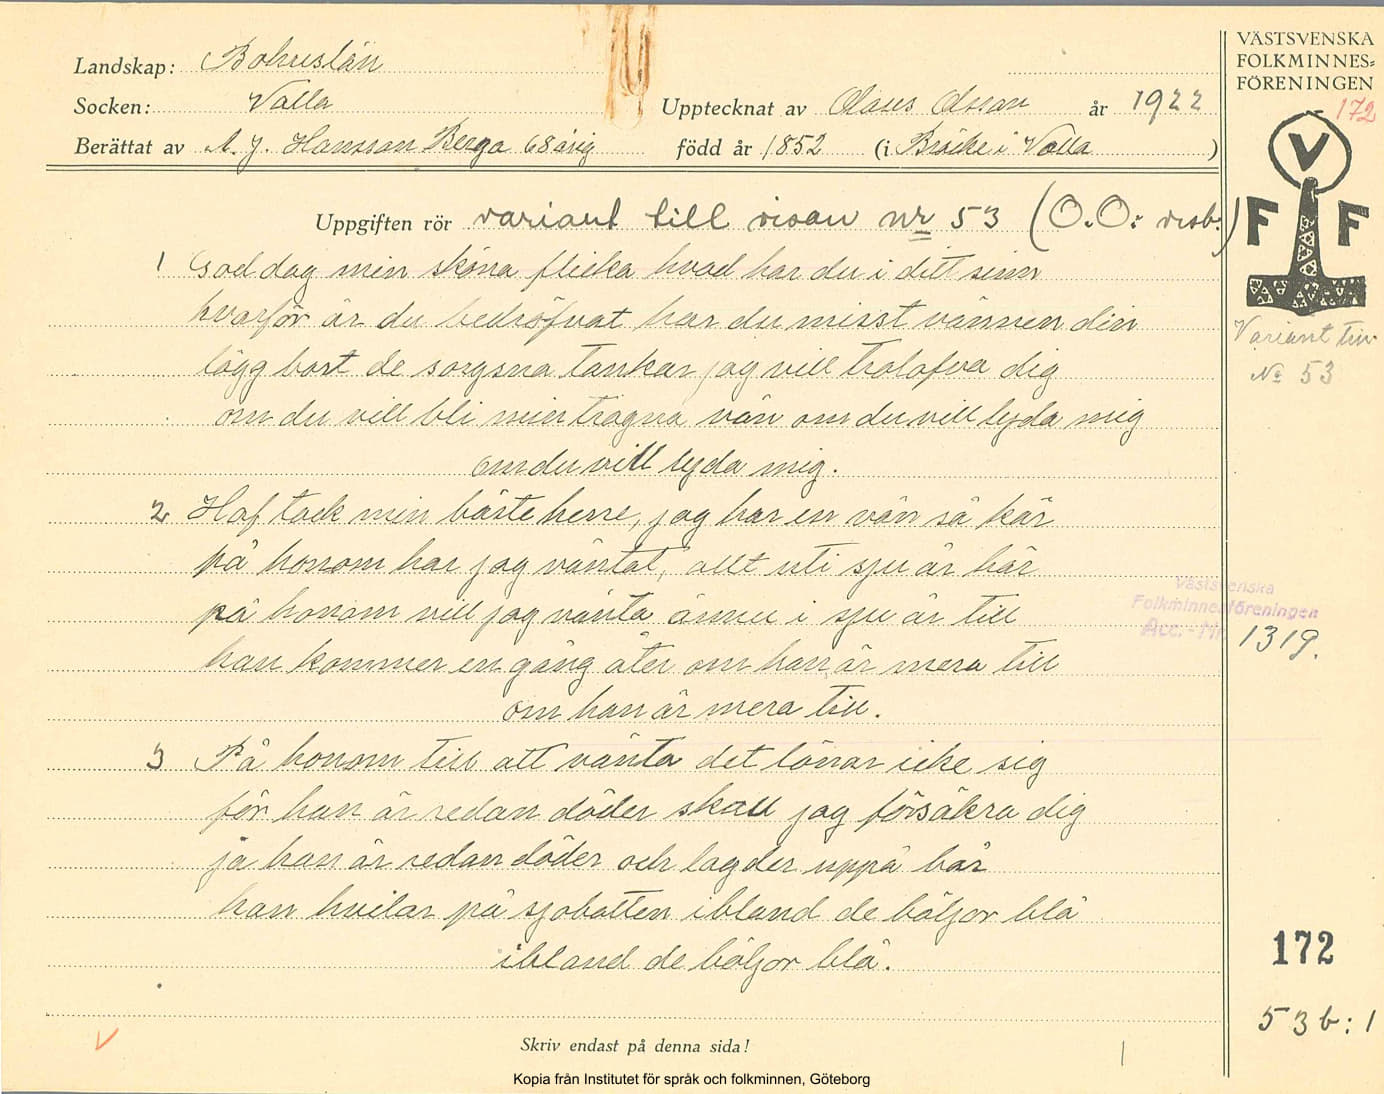 Landskap: Bohuslän
Socken: Valla
Upptecknat av Olaus Olsson år 1922
Berättat av A. J. Hansson Berga 68 årig
född år 1852 (i Bräcke i Valla)
VÄSTSVENSKA
FOLKMINNES=
FÖRENINGEN
172
V
F F
Uppgiften rör variant till visan nr 53 (O.O:s visb.)
Variant till
No 53
1 God dag min sköna flicka hvad har du i ditt sinn
hvarför är du bedröfvat har du misst vännen din
lägg bort de sorgsna tankar jag vill trolofva dig
om du vill bli min trogna vän om du vill lyda mig
om du vill lyda mig.
2 Haf tack min bäste herre, jag har en vän så kär
på honom har jag väntat, allt uti sju år här
på honom vill jag vänta ännu i sju år till
han kommer en gång åter om han är mera till
om han är mera till.
Västsvenska
Folkminnesföreningen
Acc.-Nr. 1319.
3 På honom till att vänta det lönar icke sig
för han är redan döder skall jag försäkra dig
ja han är redan döder och lagder uppå bår
han hvilar på sjobotten ibland de böljor blå
ibland de böljor blå.
172
53 b: 1
Skriv endast på denna sida!
Kopia från Institutet för språk och folkminnen, Göteborg